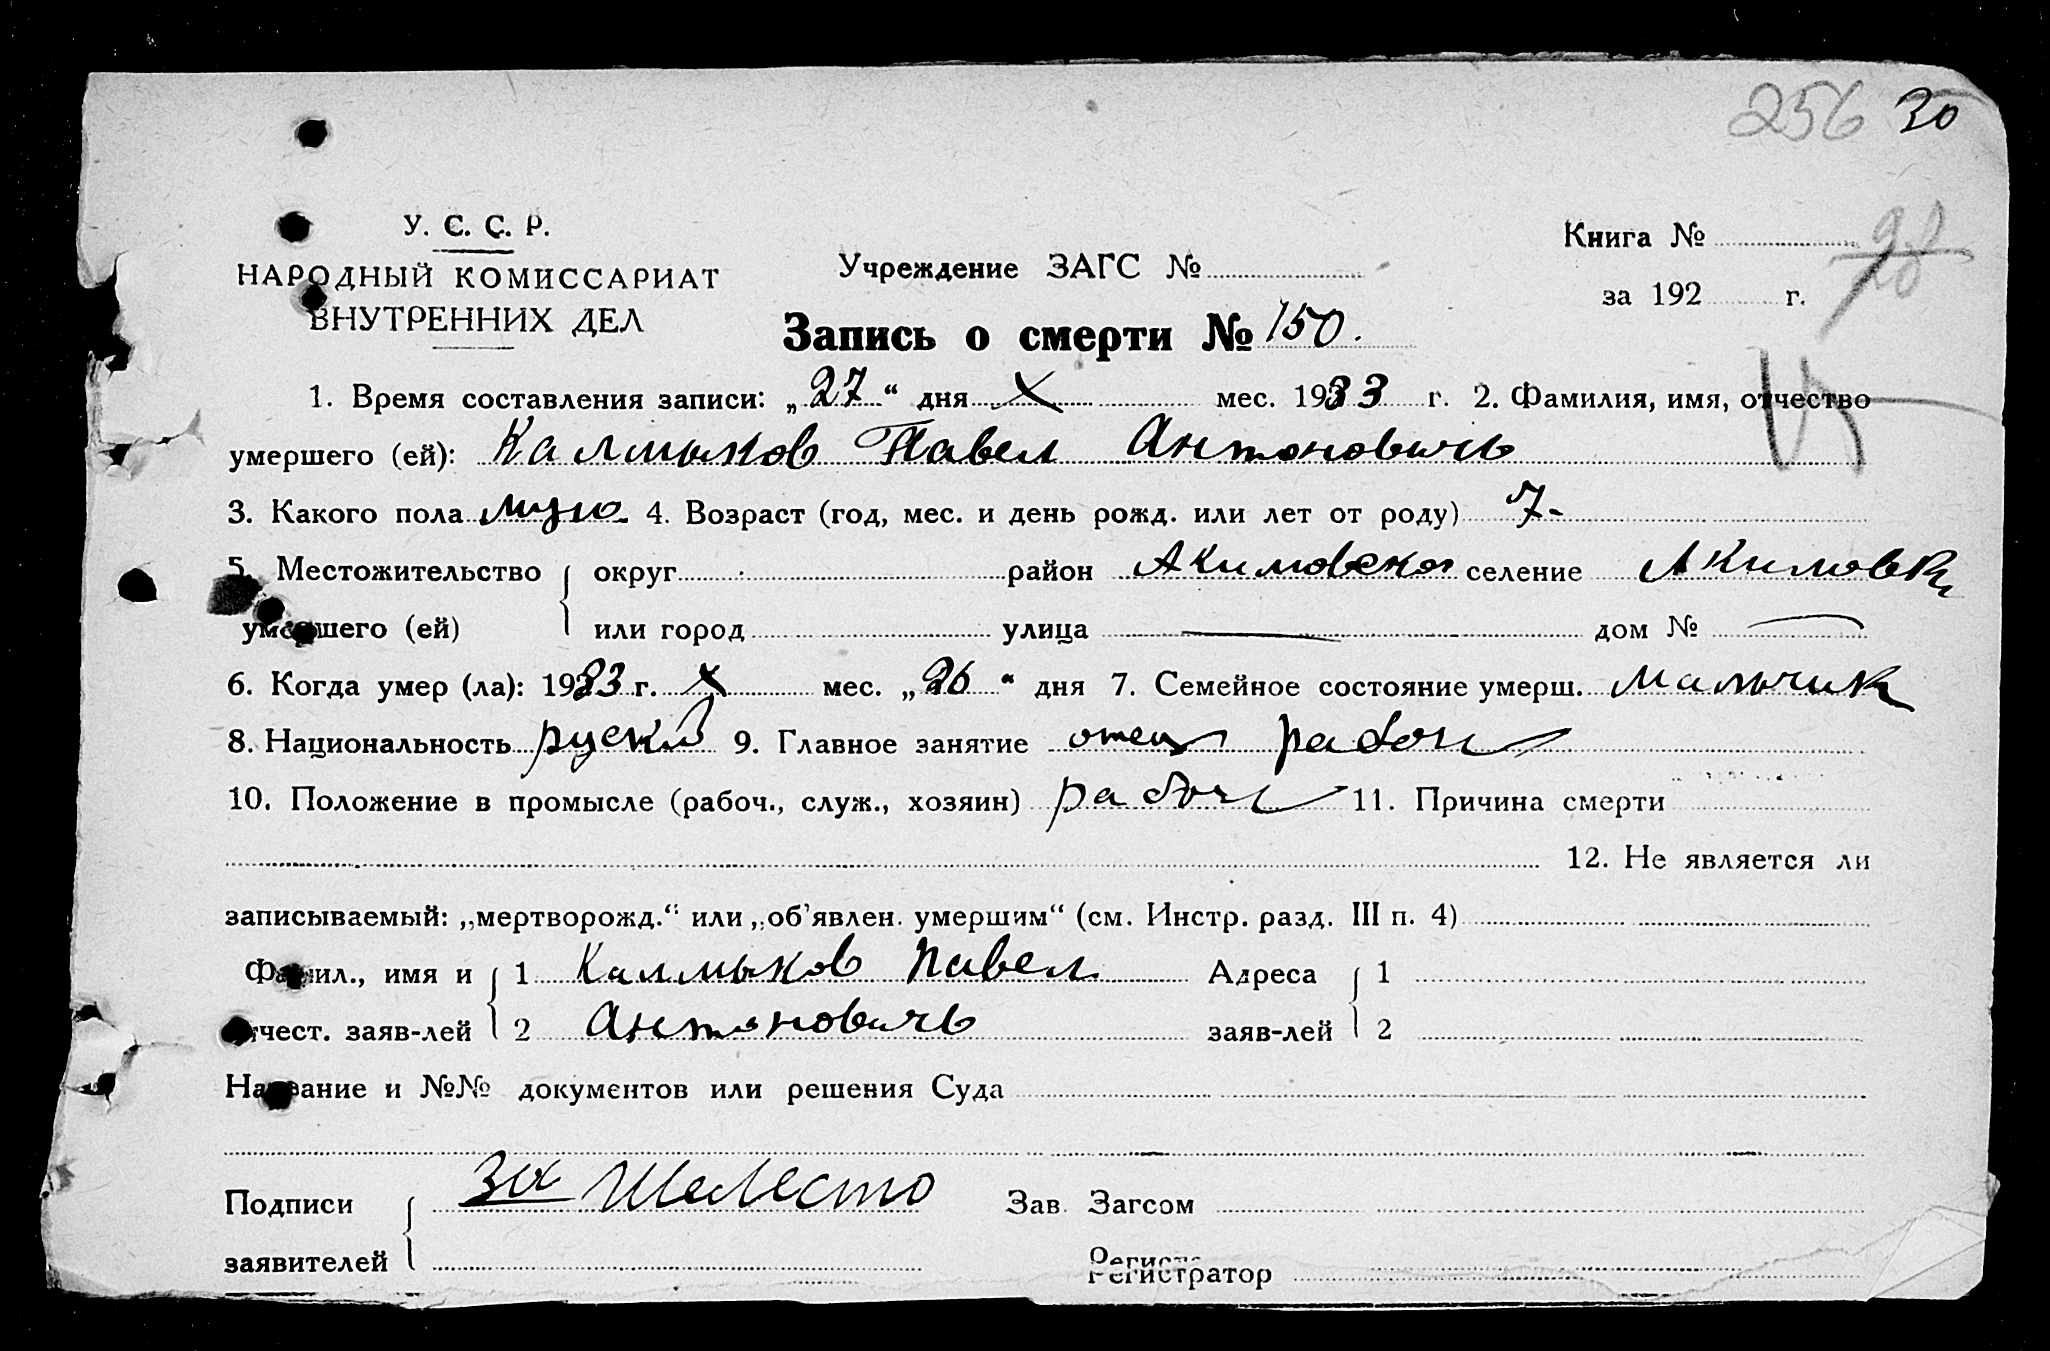 256 30
У. С. С. Р.
НАРОДНЫЙ КОМИССАРИАТ
ВНУТРЕННИХ ДЕЛ
Учреждение ЗАГС №
Книга №
за 192 г.
Запись о смерти № 150.
1. Время составления записи: „27“ дня X мес. 1933 г. 2. Фамилия, имя, отчество
умершего (ей): Калмыков Павел Антоновичь
3. Какого пола муж. 4. Возраст (год, мес. и день рожд. или лет от роду) 7-
5. Местожительство округ район Акимовског селение Акимовк
умершего (ей) или город улица — дом № —
6. Когда умер (ла): 1933 г. X мес. „26“ дня 7. Семейное состояние умерш. мальчик
8. Национальность руский 9. Главное занятие отец рабоч
10. Положение в промысле (рабоч., служ., хозяин) рабоч 11. Причина смерти
12. Не является ли
записываемый: „мертворожд.“ или „об’явлен. умершим“ (см. Инстр. разд. III п. 4)
Фамил., имя и 1 Калмыков Павел Адреса 1
отчест. заяв-лей 2 Антоновичь заяв-лей 2
Название и №№ документов или решения Суда
Подписи Зи Зав. Загсом
заявителей Регистратор